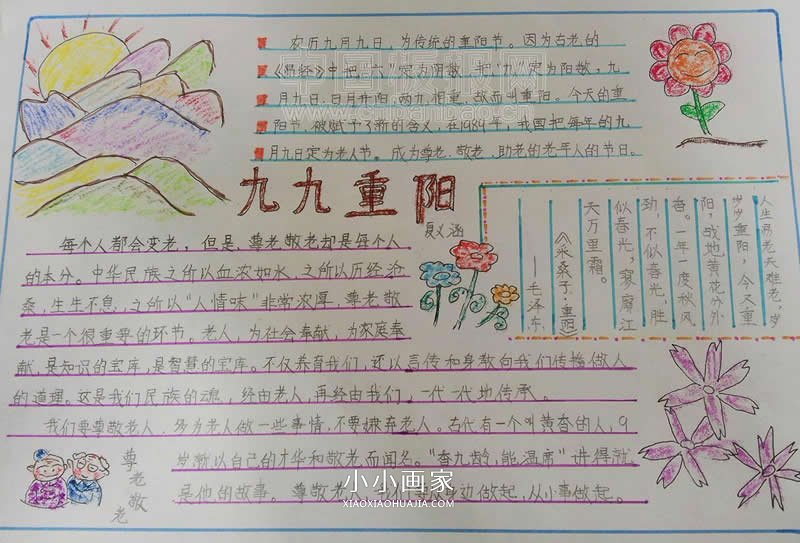 农历九月九日,为传统的重阳节。因为古老的
《易经》中把"六"定为阴数,把"九"定为阳数,九
月九日,日月并阳,两九相重,故而叫重阳。今天的重
阳节,被赋予了新的含义,在1989年,我国把每年的九
月九日定为老人节。成为尊老、敬老、助老的老年人的节日。
九九重阳
夏义涵
每个人都会变老,但是,尊老敬老却是每个人
的本分。中华民族之所以血浓如水,之所以历经沧
桑,生生不息,之所以"人情味"非常浓厚,尊老敬
老是一个很重要的环节。老人,为社会奉献,为家庭奉
献,是知识的宝库,是智慧的宝库。不仅养育我们,还以言传和身教向我们传播做人
的道理。这是我们民族的魂,经由老人,再经由我们,一代一代地传承。
我们要尊敬老人,多为老人做一些事情,不要嫌弃老人。古代有一个叫黄香的人,9
岁就以自己的才华和敬老而闻名。"香九龄,能温席"讲得就
是他的故事。尊敬老人,身边做起,从小事做起。
人生易老天难老,岁
岁重阳,今又重
阳,战地黄花分外
香。一年一度秋风
劲,不似春光,胜
似春光,寥廓江
天万里霜。
《采桑子·重阳》
——毛泽东
尊老敬老
小小画家
XIAOXIAOHUAJIA.COM